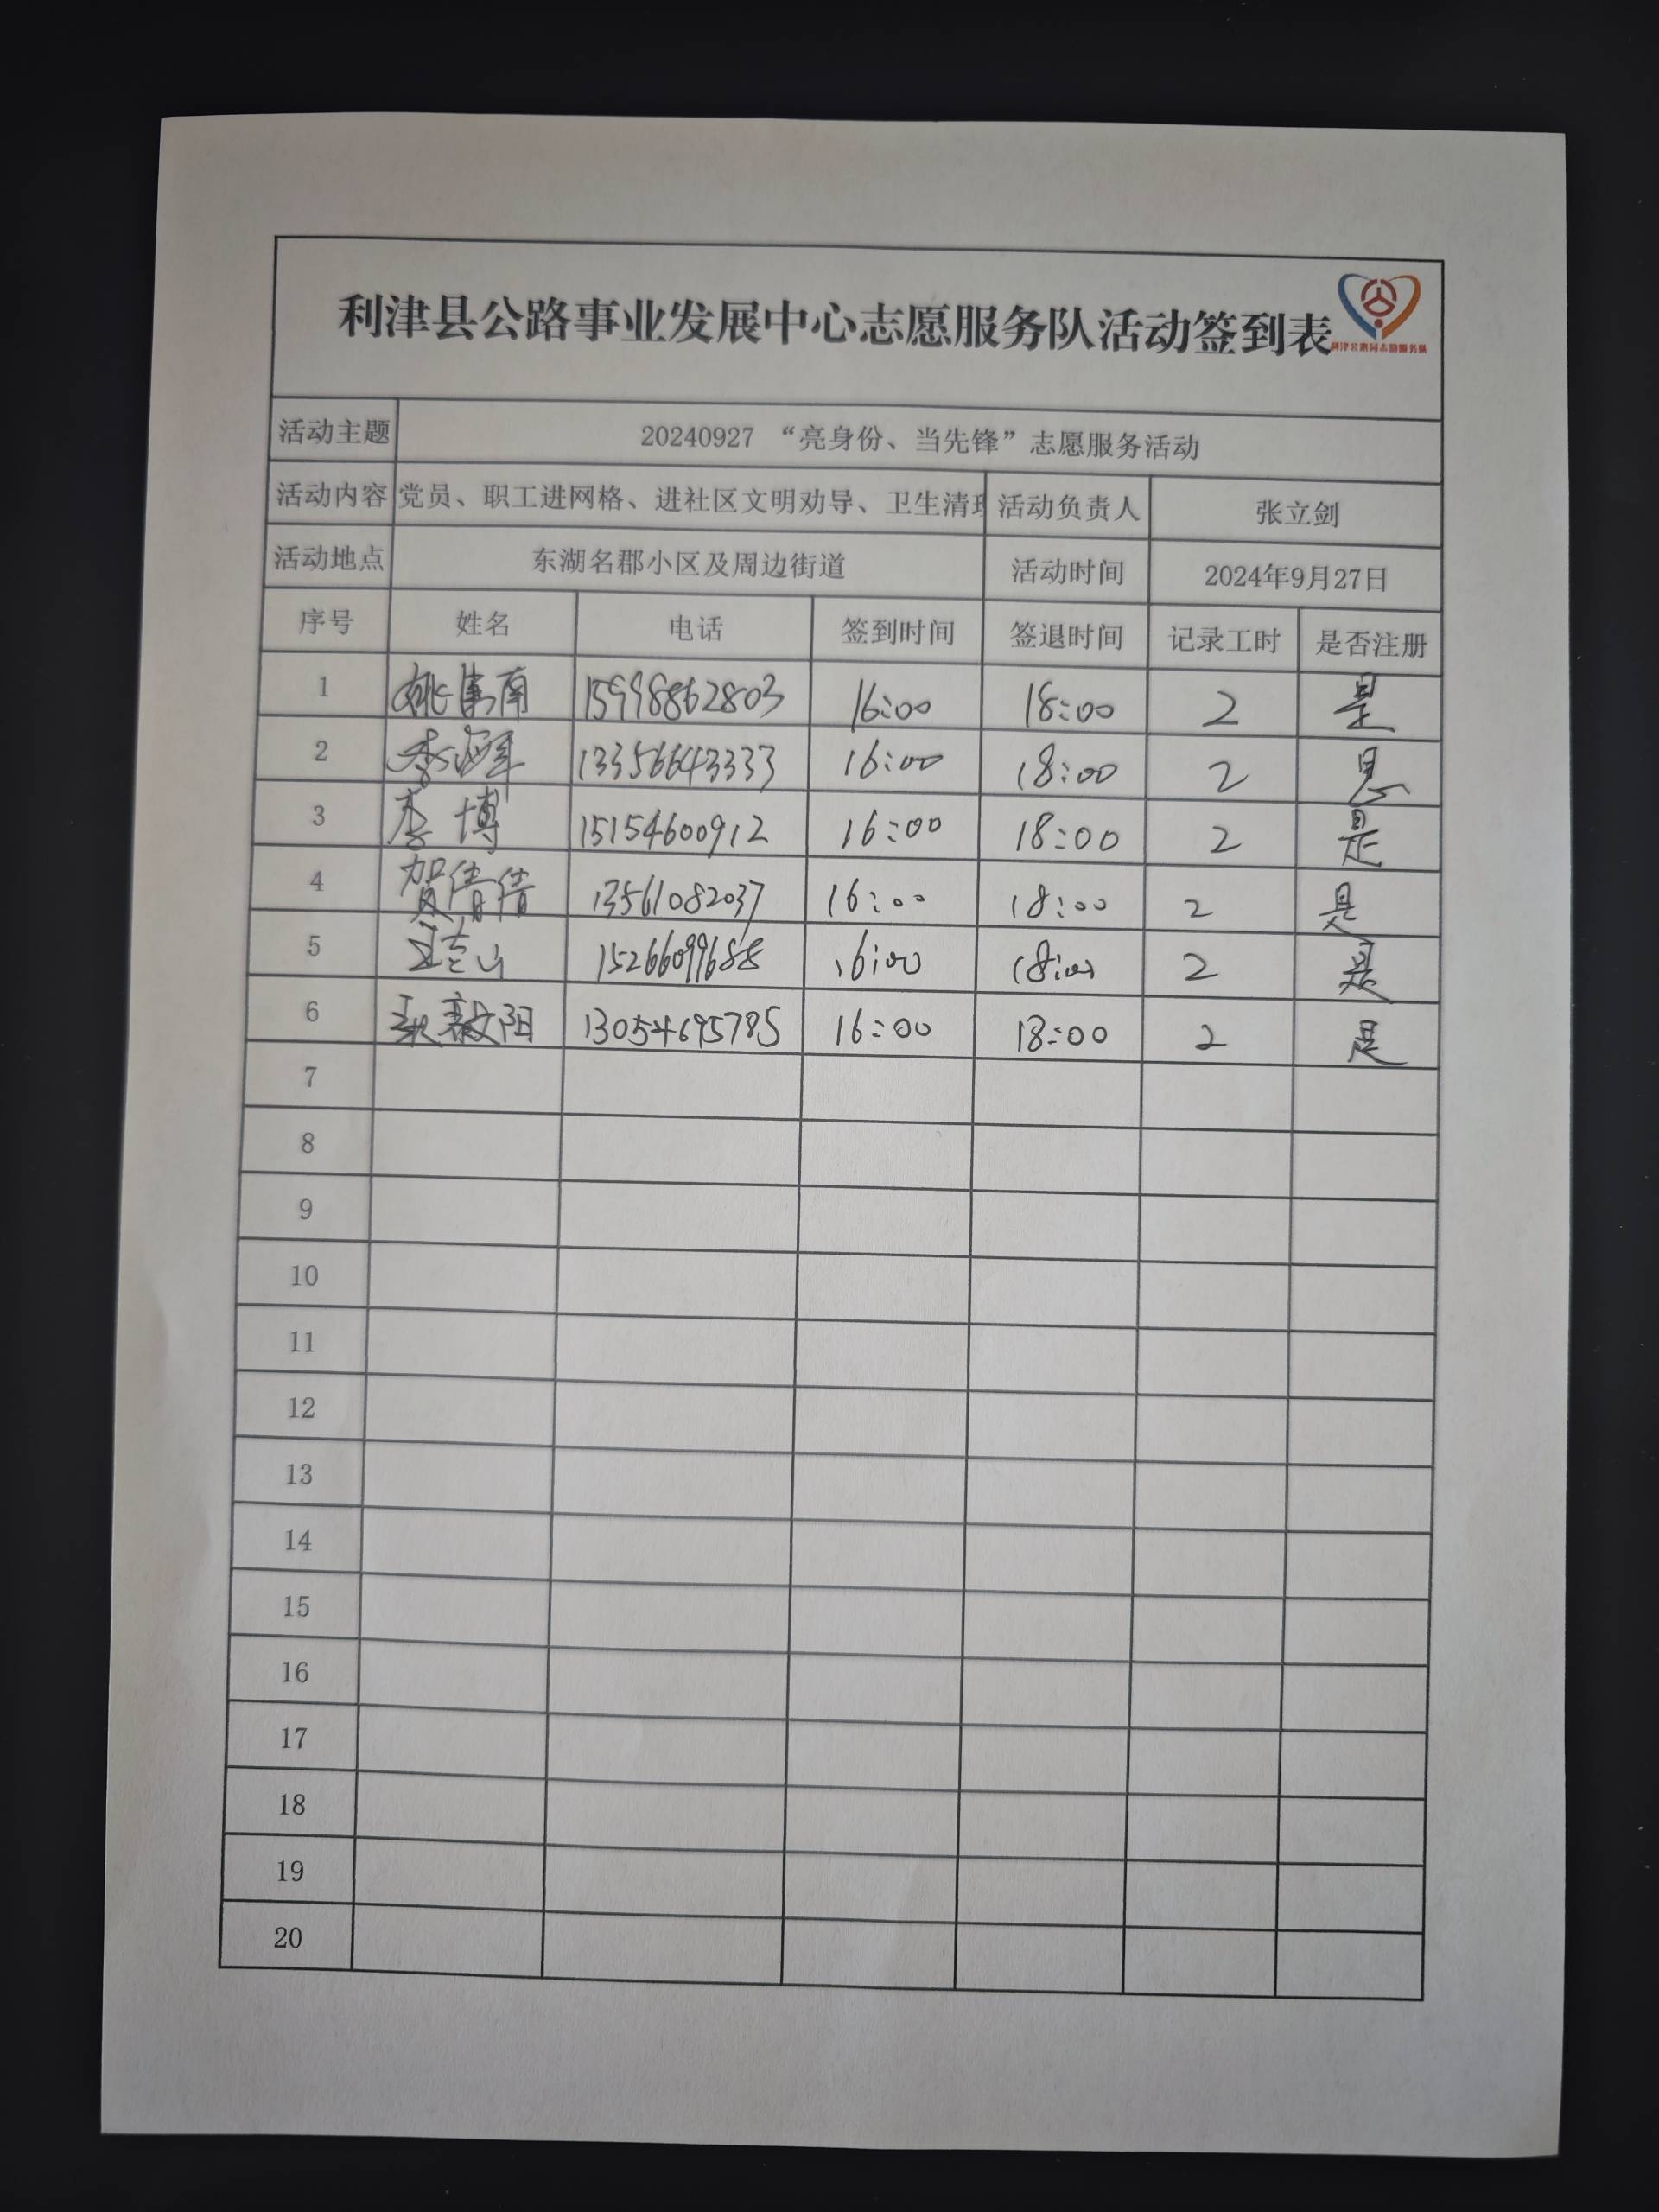 利津县公路事业发展中心志愿服务队活动签到表
利津公路局志愿服务队
活动主题 20240927 “亮身份、当先锋”志愿服务活动
活动内容 党员、职工进网格、进社区文明劝导、卫生清理 活动负责人 张立剑
活动地点 东湖名郡小区及周边街道 活动时间 2024年9月27日
序号 姓名 电话 签到时间 签退时间 记录工时 是否注册
1 南 15998862803 16:00 18:00 2 是
2 李海军 13356643333 16:00 18:00 2 是
3 李博 15154600912 16:00 18:00 2 是
4 贺倩倩 13561082037 16:00 18:00 2 是
5 山 15266099688 16:00 18:00 2 是
6 阳 13054695785 16:00 18:00 2 是
7
8
9
10
11
12
13
14
15
16
17
18
19
20